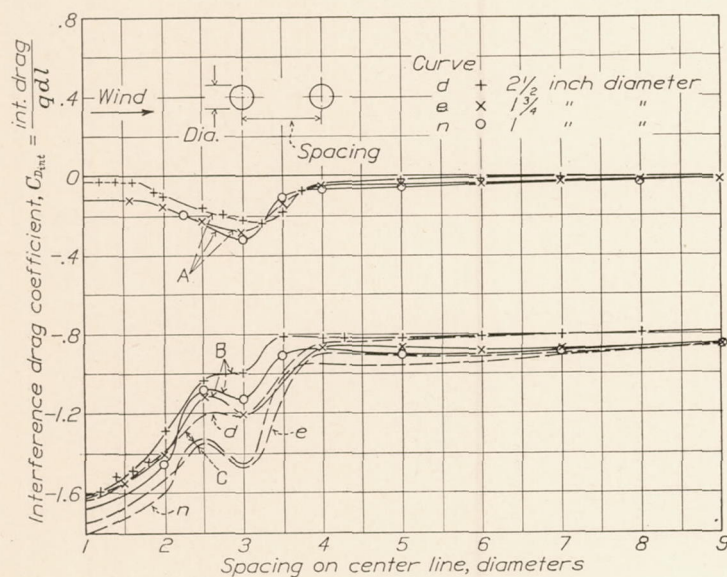 .8
.4
0
-.4
-.8
-1.2
-1.6
Interference drag coefficient, C_{D_{int}} = int. drag / qdl
Wind
Dia.
Spacing
Curve
d + 2 1/2 inch diameter
e × 1 3/4 " "
n o 1 " "
A
B
d
e
C
n
1 2 3 4 5 6 7 8 9
Spacing on center line, diameters